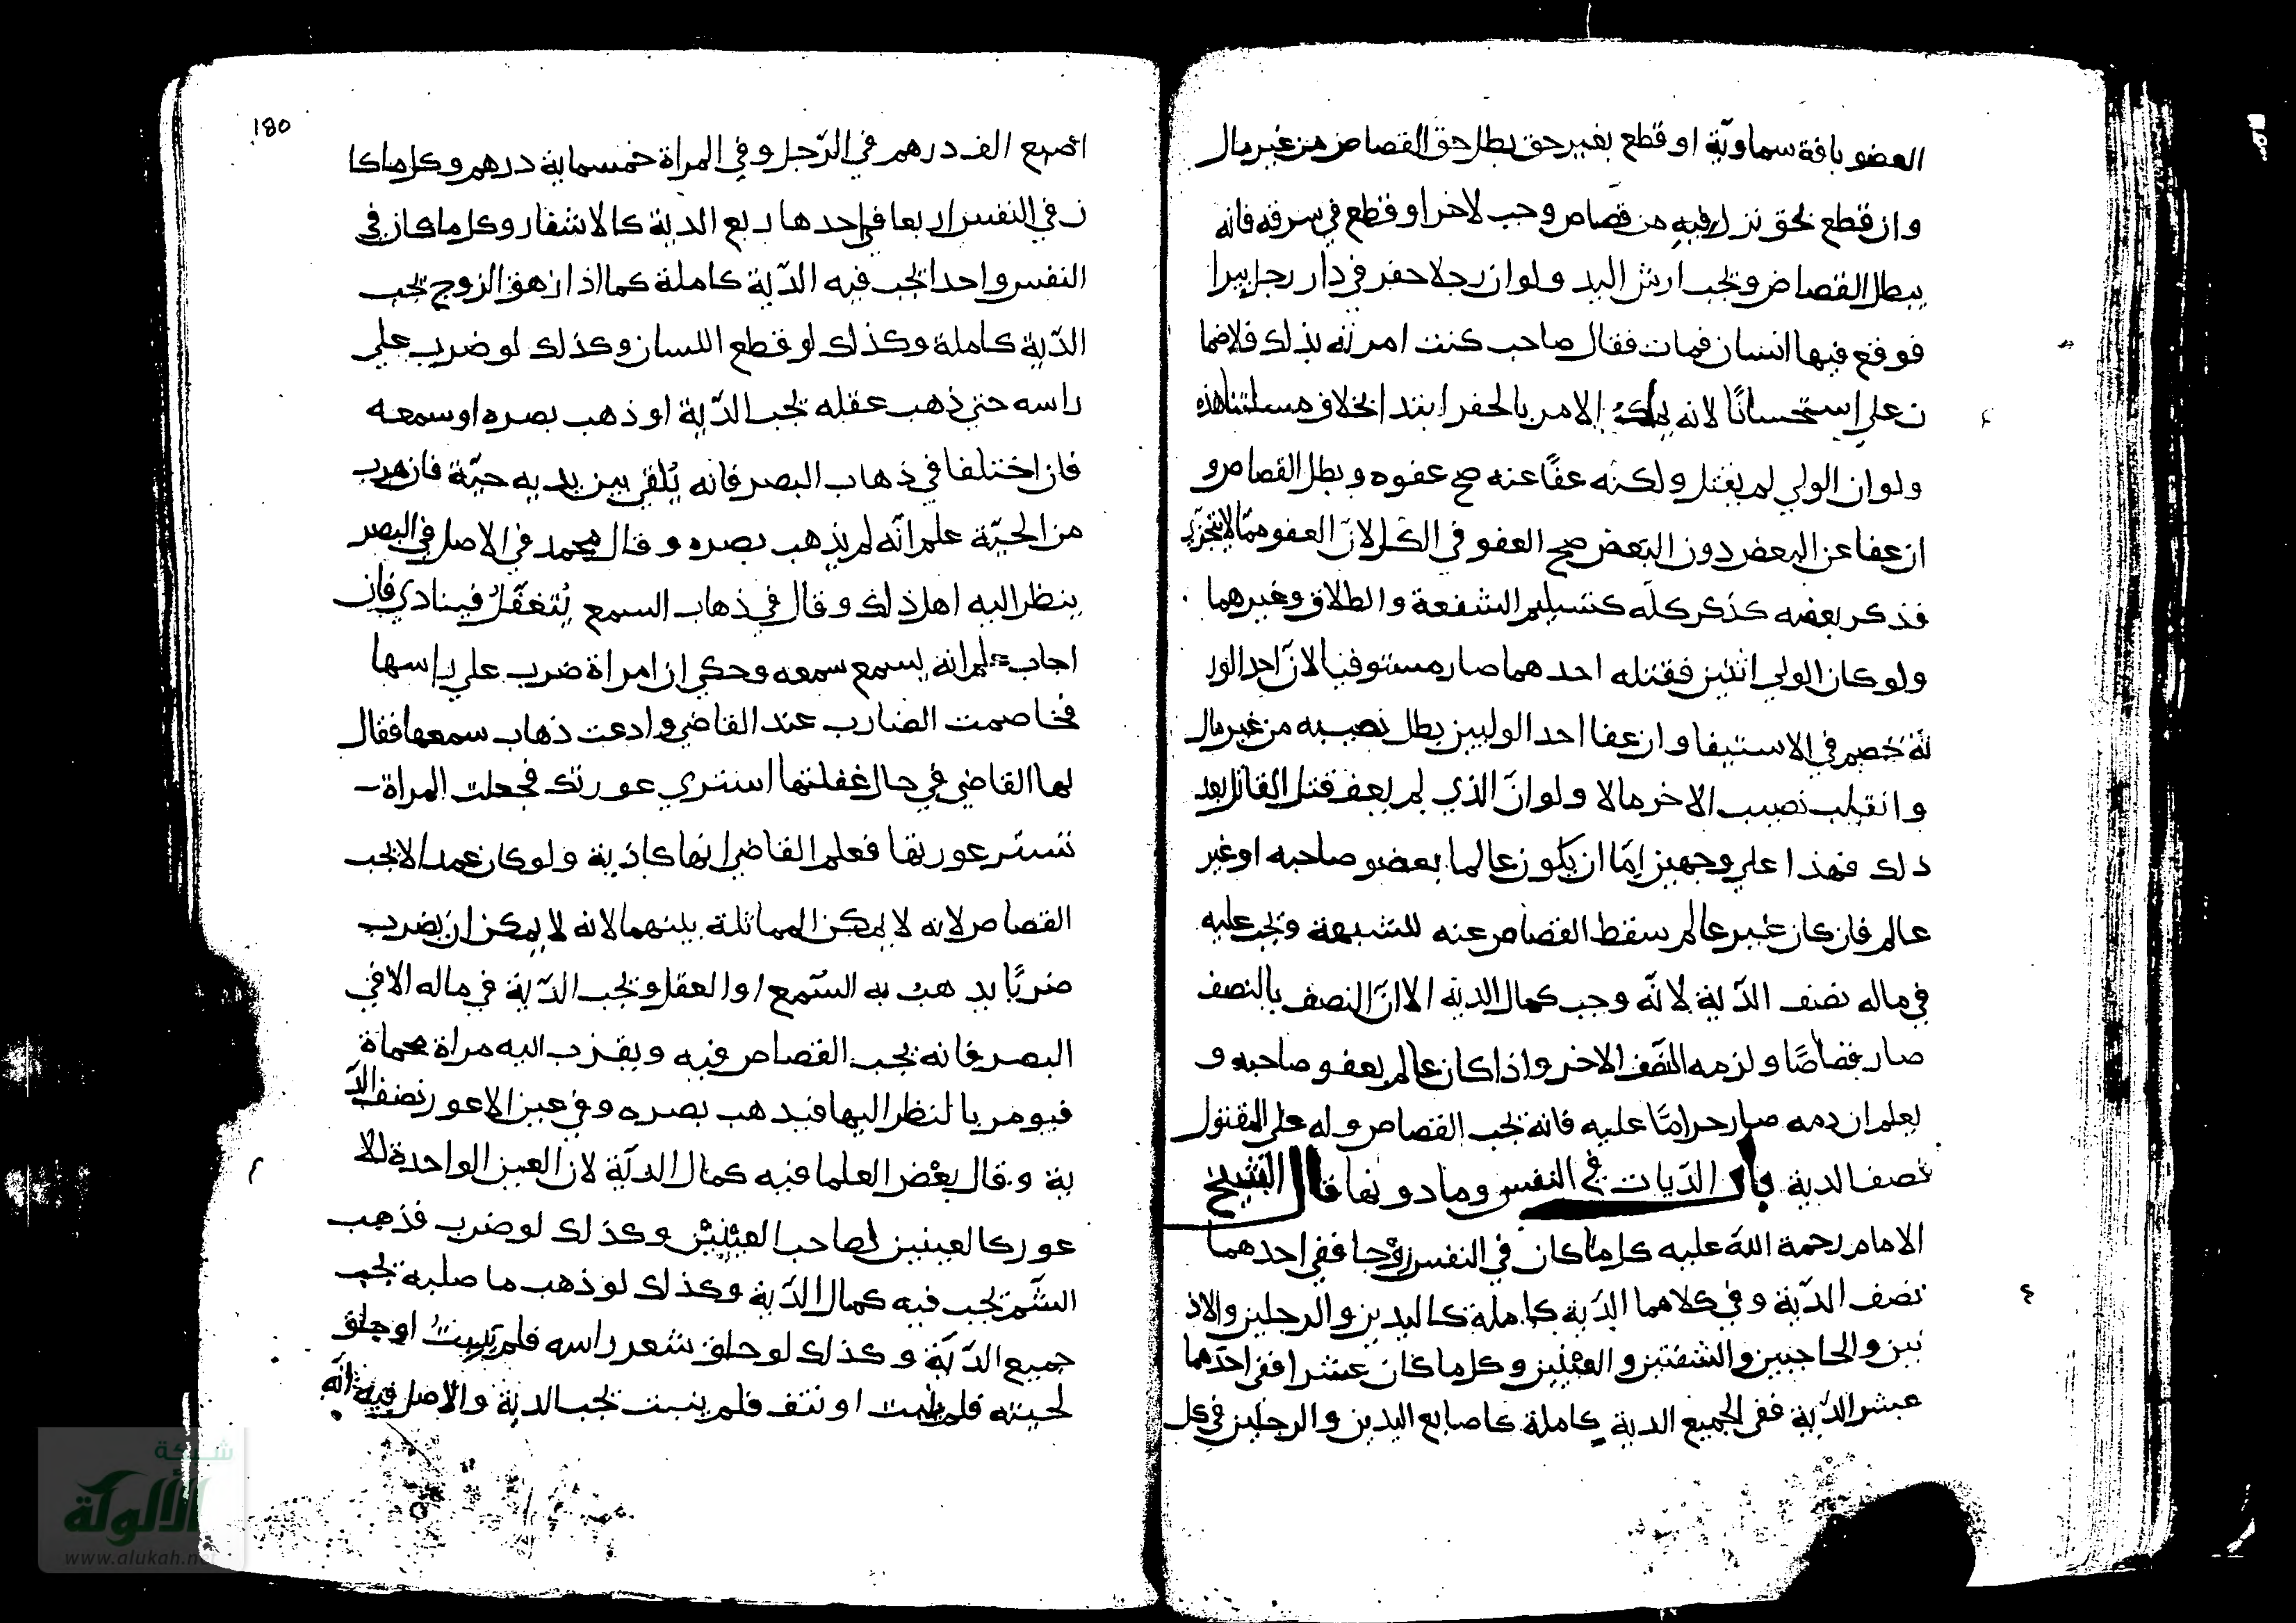 العضو بافة سماوية او قطع بغير حق بطل حق القصاص من غير مال
وان قطع بحق نزل فيه من قصاص وجب لاخر او قطع في سرقة فانه
يبطل القصاص وتجب ارش اليد ولو ان رجلا حفر في دار رجل بيرا
فوقع فيها انسان فمات فقال صاحب كنت امرته بذلك فلا ضما
ن علي استحسانًا لانه يملك الامر بالحفر ابتدا بخلاف مسئلتنا هذه
ولو ان الولي لم يقتل ولكنه عفًا عنه صح عفوه وبطل القصاص و
ان عفا عن البعض دون البعض صح العفو في الكل لانّ العفو ممّا لا يتجزّي
فذكر بعضه كذكر كله كتسليم الشفعة والطلاق وغيرهما
ولو كان الولي اثنين فقتله احدهما صار مستوفيا لانّ احد الور
ثة خصم في الاستيفا وان عفا احد الوليين بطل نصيبه من غير مال
وانقلب نصيب الاخر مالا ولو انّ الذي لم يعف قتل القاتل بعد
ذلك فهذا علي وجهين امّا ان يكون عالما بعفو صاحبه او غير
عالم فان كان غير عالم سقط القصاص عنه للشبهة وتجب عليه
في ماله نصف الدّية لانّه وجب كمال الدية الا انّ النصف بالنصف
صار قصاصًا ولزمه النصف الاخر واذا كان عالم بعفو صاحبه و
يعلم ان دمه صار حرامًا عليه فانه تجب القصاص وله علي المقتول
نصف الدية باب الدّيات في النفس وما دونها قال الشيخ
الامام رحمة الله عليه كل ما كان في النفس زوجا ففي احدهما
نصف الدّية وفي كلاهما الدّية كاملة كاليدين والرجلين والاذ
نين والحاجبين والشفتين والعينين وكل ما كان عشرا ففي احدهما
عشر الدّية ففي الجميع الدية كاملة كاصابع اليدين والرجلين في كل
180
اصبع الف درهم في الرّجل وفي المراة خمسماية درهم وكل ما كا
ن في النفس اربعا في احدها ربع الدية كالاشفار وكل ما كان في
النفس واحدا تجب فيه الدّية كاملة كما اذا ازهق الزوج تجب
الدّية كاملة وكذلك لو قطع اللسان وكذلك لو ضرب علي
راسه حتي ذهب عقله تجب الدّية او ذهب بصره او سمعه
فان اختلفا في ذهاب البصر فانه يُلقي بين يديه حيّة فان هرب
من الحيّة علم انّه لم يذهب بصره وقال محمد في الاصل في البصر
ينظر اليه اهل ذلك وقال في ذهاب السمع يُتغفّلُ فينادي فان
اجاب علم انه يسمع سمعه وحكي ان امراة ضرب علي راسها
فخاصمت الضارب عند القاضي وادعت ذهاب سمعها فقال
لها القاضي في حال غفلتها استري عورتك فجعلت المراة
تستر عورتها فعلم القاضي انها كاذبة ولو كان عمدا لا تجب
القصاص لانه لا يمكن المماثلة بينهما لانه لا يمكن ان يضرب
ضربًا يذهب به السّمع او العقل وتجب الدّية في ماله الا في
البصر فانه تجب القصاص فيه ويقرب اليه مراة محماة
فيومر بالنظر اليها فيذهب بصره وفي عين الاعور نصف الد
ية وقال بعض العلما فيه كمال الديّة لان العين الواحدة للا
عور كالعينين لصاحب العينين وكذلك لو ضرب فذهب
الشّم تجب فيه كمال الدّية وكذلك لو ذهب ما صلبه تجب
جميع الدّية وكذلك لو حلق شعر راسه فلم ينبت او حلق
لحيته فلم ينبت او نتف فلم ينبت تجب الدية والاصل فيه انّه
شبكة
الألوكة
www.alukah.net